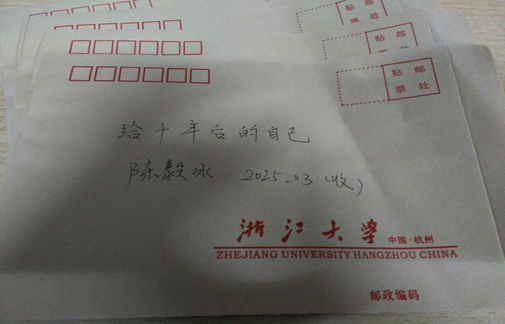 贴 邮
票 处
贴 邮
票 处
贴 邮
票 处
给十年后的自己
陈毅冰 2025.03（收）
浙江大学 中国·杭州
ZHEJIANG UNIVERSITY HANGZHOU CHINA
邮政编码